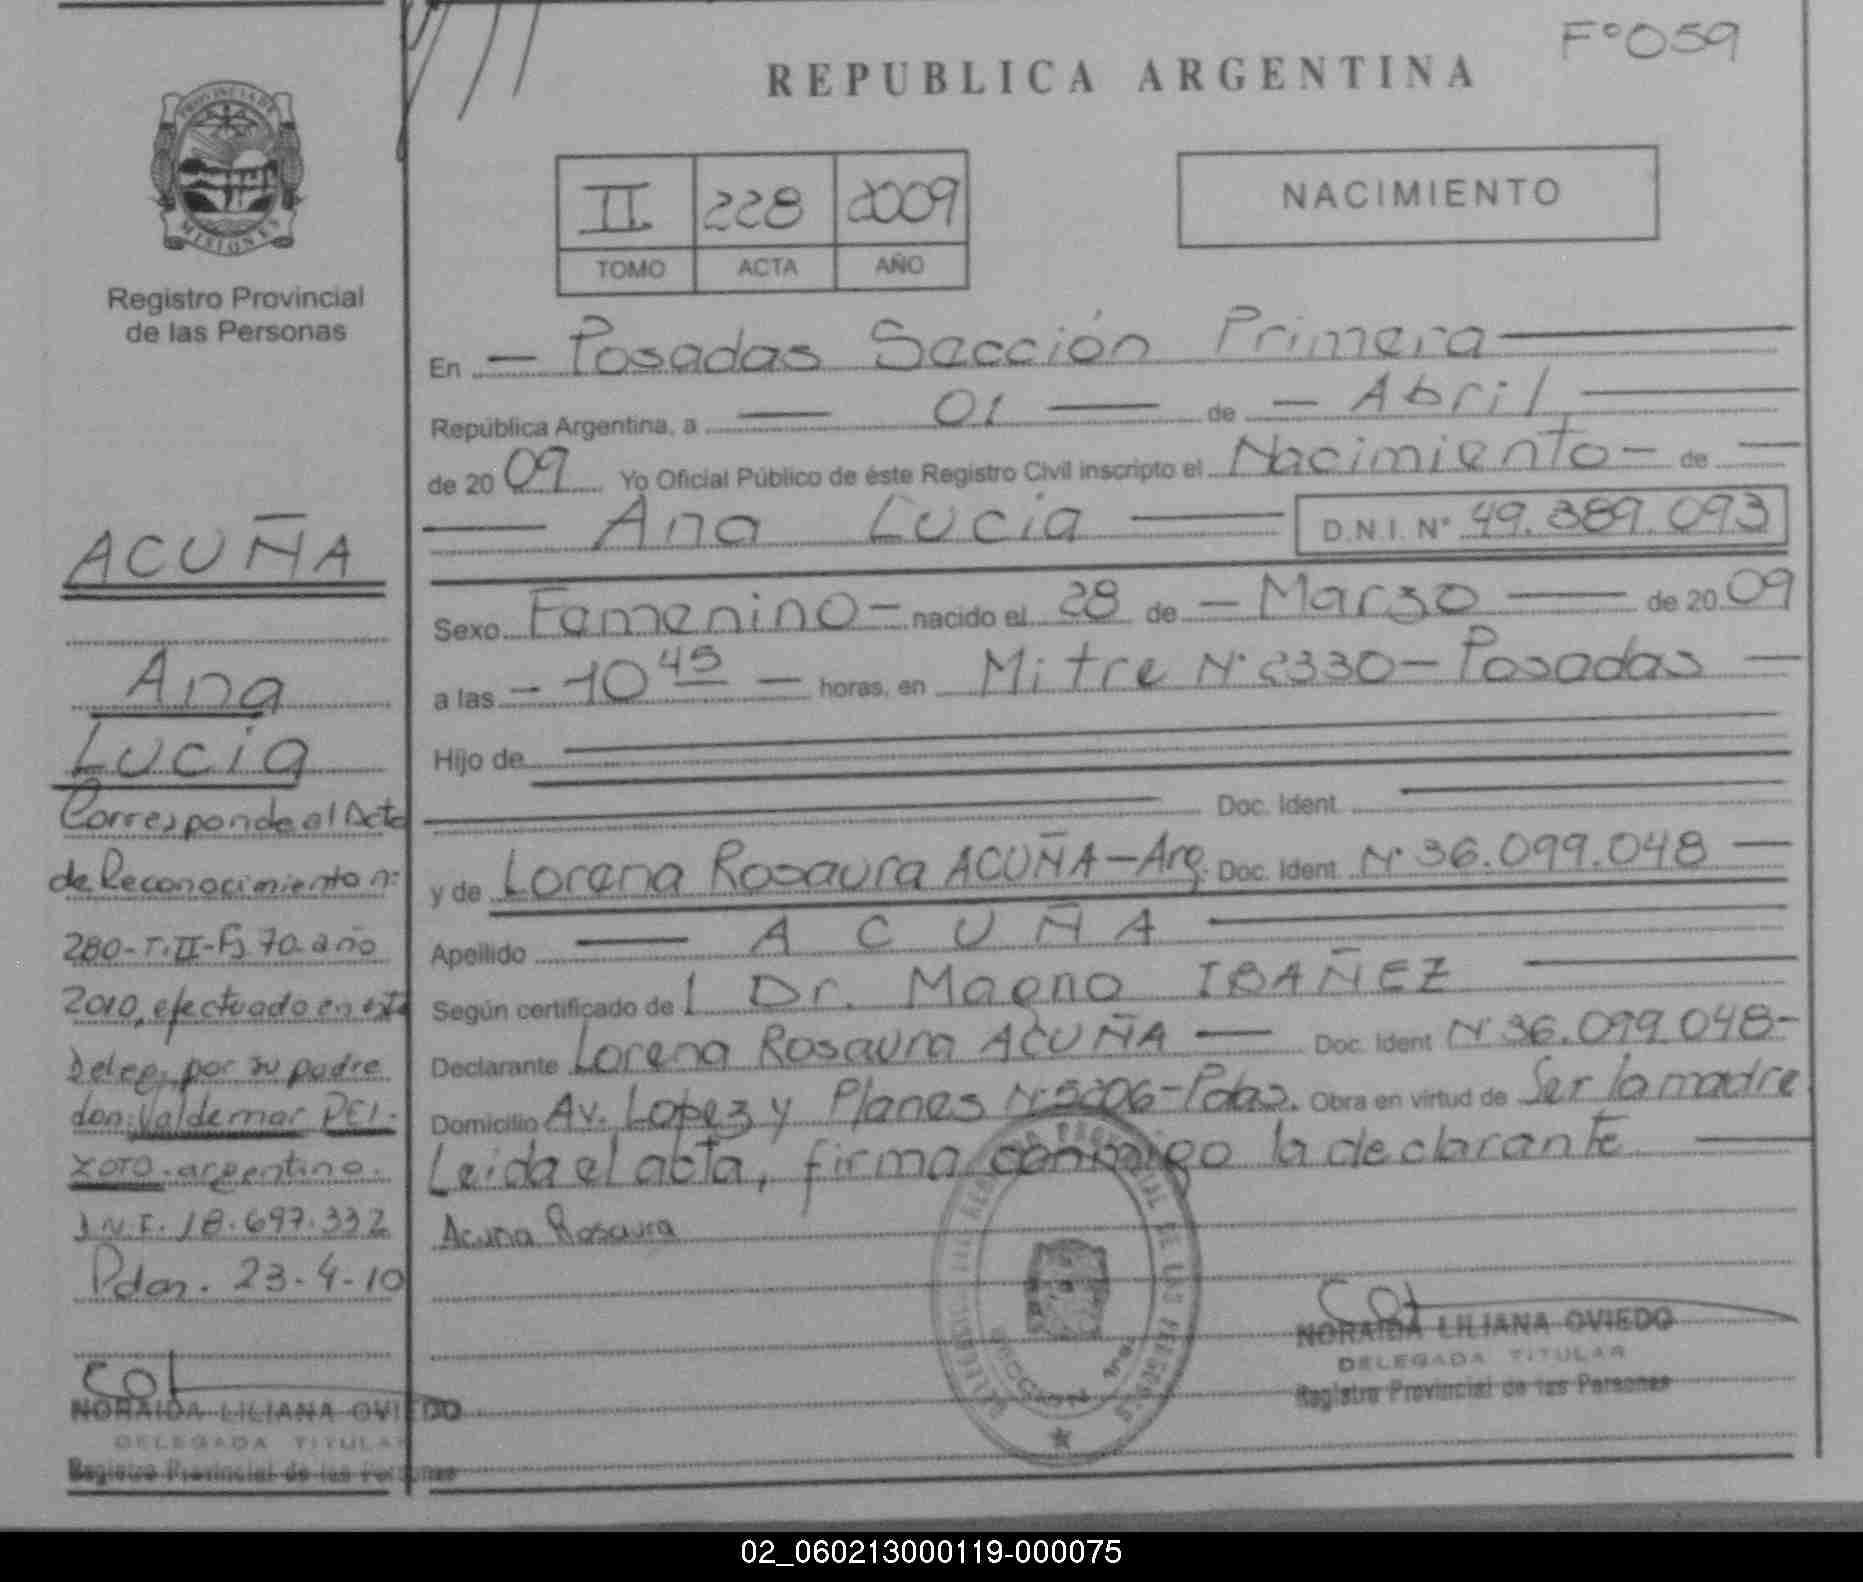 F°059
REPUBLICA ARGENTINA
PROVINCIA DE
MISIONES
Registro Provincial
de las Personas
II 228 2009
TOMO ACTA AÑO
NACIMIENTO
En Posadas Sección Primera
República Argentina, a 01 de Abril
de 2009 Yo Oficial Público de éste Registro Civil inscripto el Nacimiento de
Ana Lucia D.N.I. N° 49.389.093
Sexo Femenino nacido el 28 de Marzo de 2009
a las 10 45 horas, en Mitre N° 2330 - Posadas
Hijo de
Doc. Ident.
y de Lorena Rosaura ACUÑA - Arg. Doc. Ident. N° 36.099.048
Apellido ACUÑA
Según certificado de l Dr. Magno IBAÑEZ
Declarante Lorena Rosaura ACUÑA Doc. Ident N° 36.099.048-
Domicilio Av. Lopez y Planes N° Pdas. Obra en virtud de Ser la madre
Leida el acta, firma conmigo la declarante
Acuña Rosaura
NORAIDA LILIANA OVIEDO
DELEGADA TITULAR
Registro Provincial de las Personas
ACUÑA
Ana
Lucia
Corresponde al Acta
de Reconocimiento n:
280-T.II-Fj 70 año
2010, efectuado en esta
Deleg. por su padre
don: Valdemar PEI-
XOTO. argentino.
D.N.I. 18.697.332
Pdas. 23-4-10
NORAIDA LILIANA OVIEDO
DELEGADA TITULAR
Registro Provincial de las Personas
02_060213000119-000075